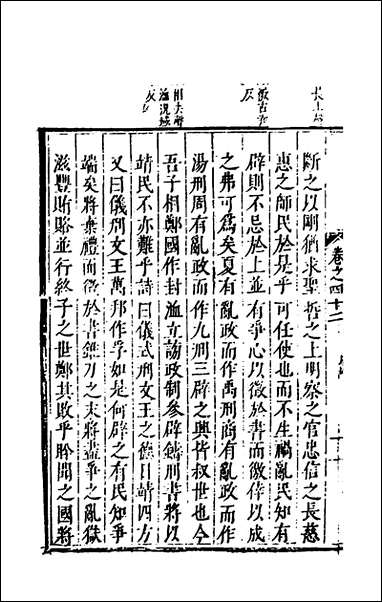 長上聲
徼古堯
反
相去聲
洫況域
反
卷之四十二
斷之以剛猶求聖哲之上明察之官忠信之長慈
惠之師民於是乎可任使也而不生禍亂民知有
辟則不忌於上並有爭心以徵於書而徼倖以成
之弗可為矣夏有亂政而作禹刑商有亂政而作
湯刑周有亂政而作九刑三辟之興皆叔世也今
吾子相鄭國作封洫立謗政制參辟鑄刑書將以
靖民不亦難乎詩曰儀式刑文王之德日靖四方
又曰儀刑文王萬邦作孚如是何辟之有民知爭
端矣將棄禮而徵於書錐刀之末將盡爭之亂獄
滋豐賄賂並行終子之世鄭其敗乎肸聞之國將